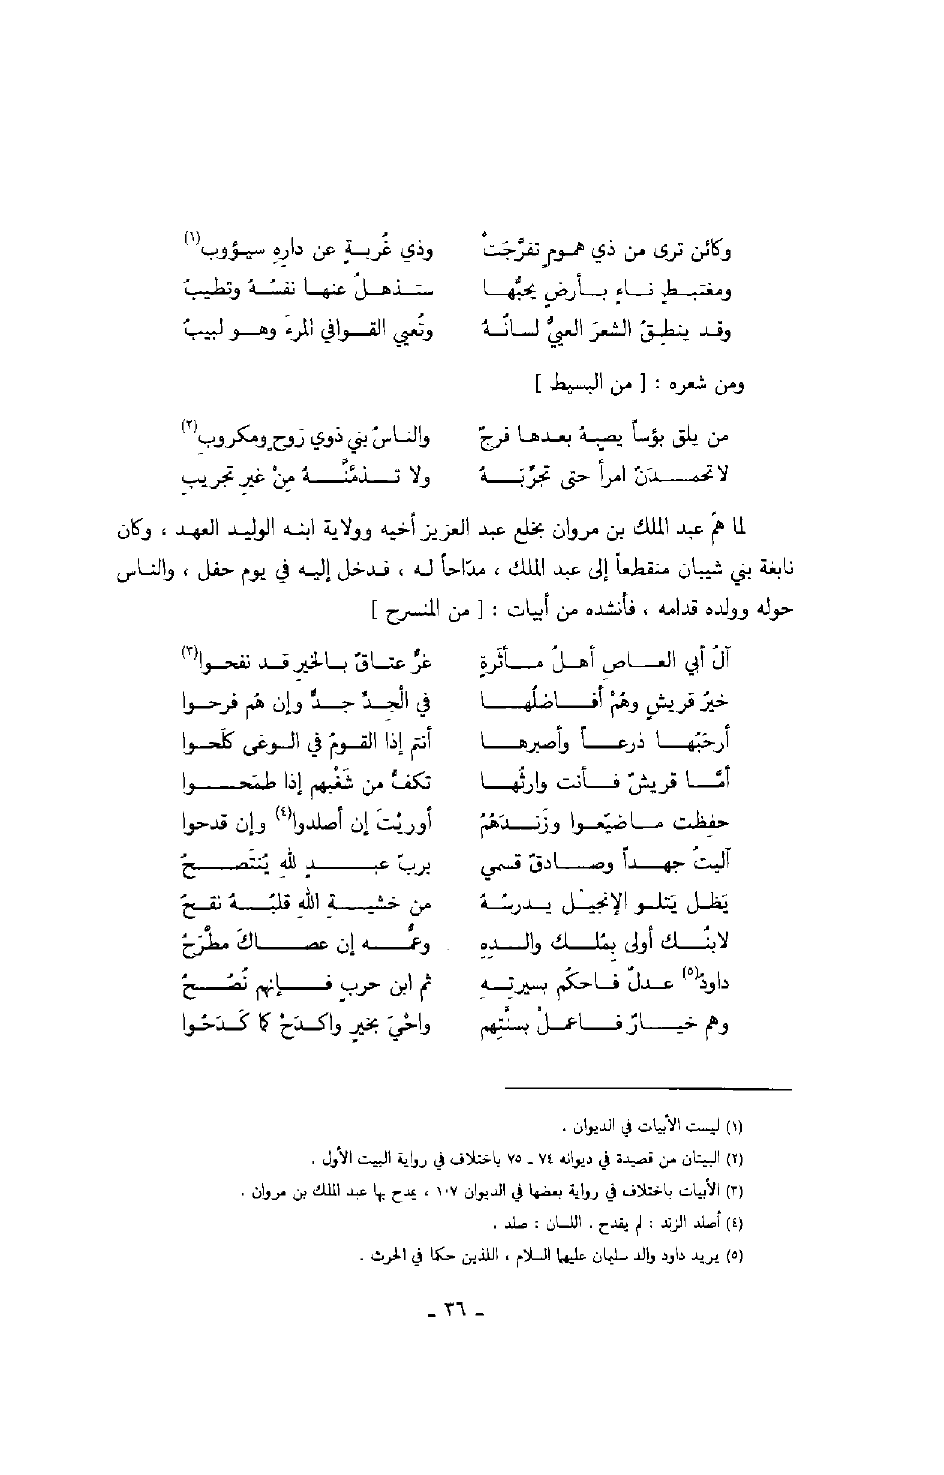 وكائن ترى من ذي همومٍ تفرَّجَتْ وذي غُربةٍ عن دارهِ سيؤوب(١)
ومغتبطٍ ناءٍ بأرضٍ يحبُّها ستذهلُ عنها نفسُهُ وتطيبُ
وقد ينطقُ الشعرَ العييُّ لسانُهُ وتُعيي القوافي المرءَ وهو لبيبُ
ومن شعره : [ من البسيط ]
من يلق بؤساً يصبهُ بعدها فرجٌ والناسُ بني ذوي رَوحٍ ومكروبِ(٢)
لا تحمدَنّ امرأً حتى تجرِّبَهُ ولا تذمَّنَّهُ مِنْ غيرِ تجريبِ
لما همّ عبد الملك بن مروان بخلع عبد العزيز أخيه وولاية ابنه الوليد العهد ، وكان
نابغة بني شيبان منقطعاً إلى عبد الملك ، مدّاحاً له ، فدخل إليه في يوم حفل ، والناس
حوله وولده قدامه ، فأنشده من أبيات : [ من المنسرح ]
آلُ أبي العاصِ أهلُ مأثرةٍ غرٌّ عتاقٌ بالخيرِ قد نفحوا(٣)
خيرُ قريشٍ وهُمْ أفاضلُها في الجدِّ جدٌّ وإن هُم فرحوا
أرحَبُها ذرعاً وأصبرها أنتم إذا القومُ في الوغى كلَحوا
أمّا قريشٌ فأنت وارثُها تكفُّ من شَغْبِهم إذا طمَحوا
حفظت ماضيّعوا وزندَهُمُ أوريْتَ إن أصلدوا(٤) وإن قدحوا
آليتُ جهداً وصادقٌ قسمي بربّ عبدٍ للهِ يَنْتَصحُ
يَظل يَتلو الإنجيلَ يدرسُهُ من خشيةِ اللهِ قلبُهُ نفحُ
لابنُك أولى بمُلكِ والدهِ وعمُّه إن عصاكَ مطَّرَحُ
داودُ(٥) عدلٌ فاحكُم بسيرتِهِ ثم ابن حربٍ فإنهم نُصُحُ
وهم خيارٌ فاعملْ بسنَّتِهم واحْيَ بخيرٍ واكدَحْ كما كَدَحُوا
(١) ليست الأبيات في الديوان .
(٢) البيتان من قصيدة في ديوانه ٧٤ ـ ٧٥ باختلاف في رواية البيت الأول .
(٣) الأبيات باختلاف في رواية بعضها في الديوان ١٠٧ ، يمدح بها عبد الملك بن مروان .
(٤) أصلد الزند : لم يقدح . اللسان : صلد .
(٥) يريد داود والد سليمان عليهما السلام ، اللذين حكما في الحرث .
ـ ٣٦ ـ